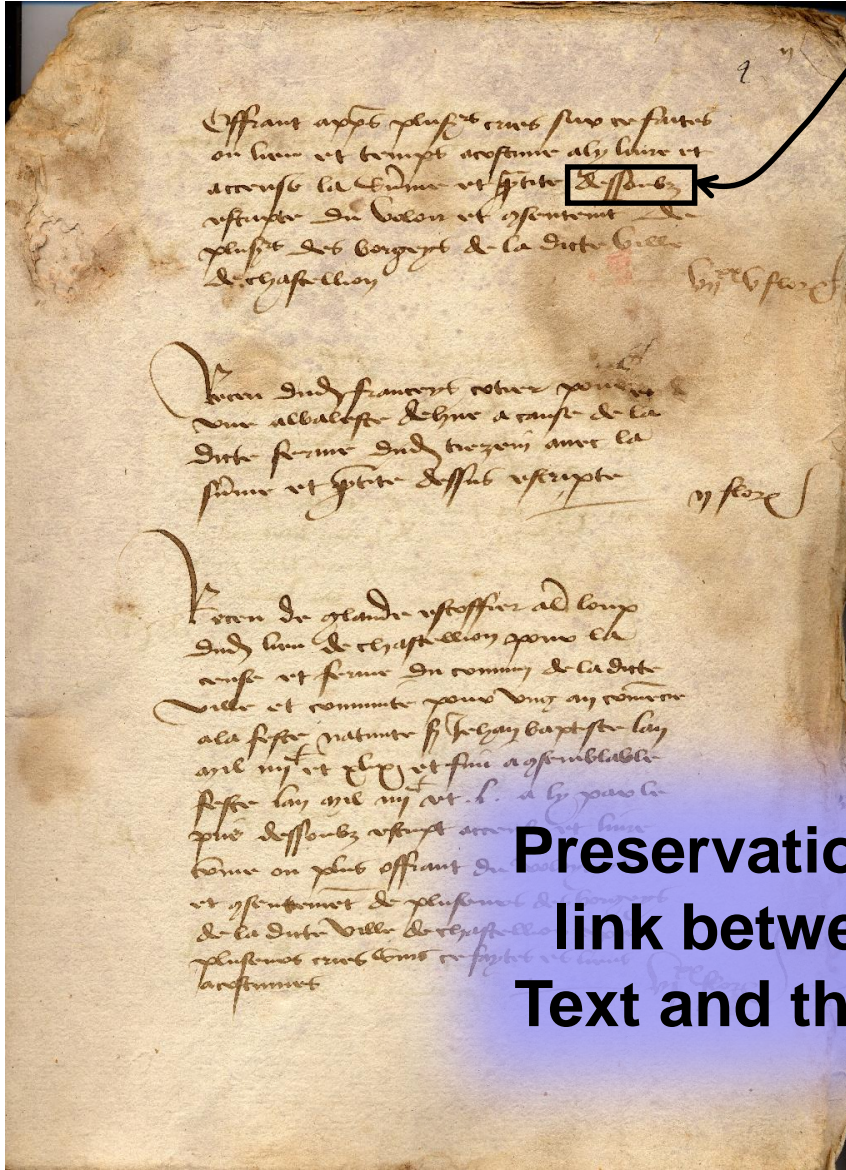 9
Offrant apprs plusrs cries sur ce faites
ou lieu et temps acostume aly livre et
accense la et qtite dessoubz
escripte du voloir et gsentemt de
plusrs des borgeys de la dicte ville
de chastellion
Receu dud franceys cotier pour
une albaleste dehue a cause de la
dicte ferme dud trezein avec la
sume et qtite dessus escripte
ij flor
Receu de glaude escoffier loup
dud lieu de chastellion pour la
cense et ferme du commun de la dicte
ville et commute pour ung an comece
ala feste nativite st Jehan baptiste lan
mil iiijc et xlix et fini a gsemblable
feste lan mil iiijc et . l . a ly par le
pnt dessoubz escript accense et livre
come ou plus offrant du
et gsentemet de plusieurs des borgeys
de la dicte ville de chastellion
plusieurs cries ce faytes et lieux
acostumes
Preservatio
link betwe
Text and th